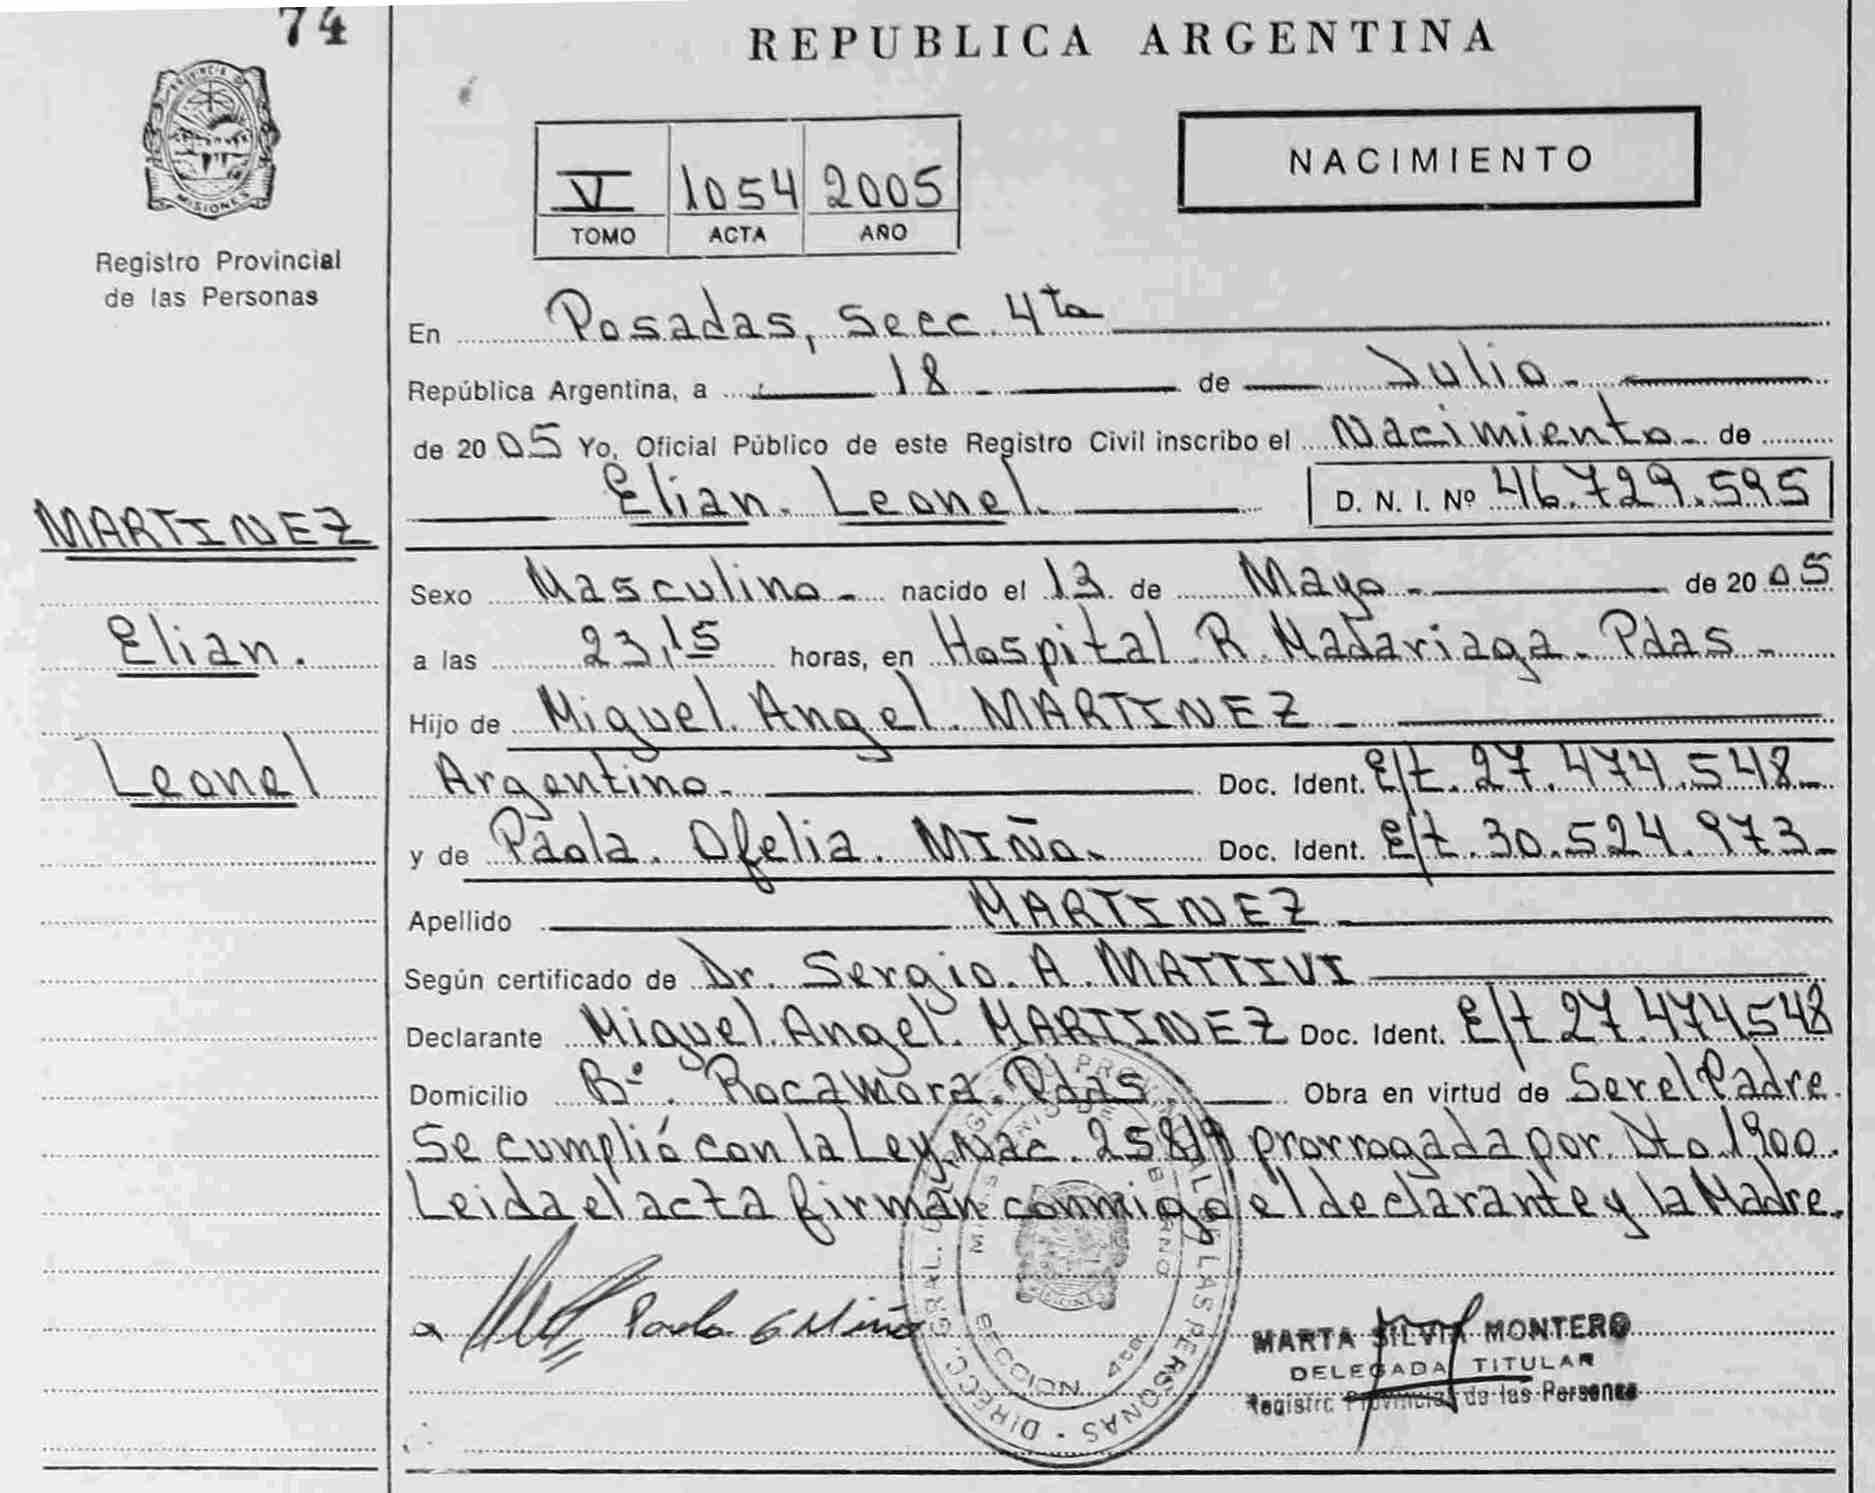 74
REPUBLICA ARGENTINA
PROVINCIA DE
MISIONES
Registro Provincial
de las Personas
V 1054 2005
TOMO ACTA AÑO
NACIMIENTO
En Posadas, Secc. 4ta
República Argentina, a 18 de Julio
de 2005 Yo, Oficial Público de este Registro Civil inscribo el Nacimiento de
Elian Leonel D. N. I. Nº 46.729.595
MARTINEZ
Elian.
Leonel
Sexo Masculino nacido el 13 de Mayo de 2005
a las 23,15 horas, en Hospital R. Madariaga. Pdas
Hijo de Miguel Angel MARTINEZ
Argentino Doc. Ident. E/t. 27.474.548
y de Paola Ofelia MIÑO Doc. Ident. E/t. 30.524.973
Apellido MARTINEZ
Según certificado de Dr. Sergio A. MATTIVI
Declarante Miguel Angel MARTINEZ Doc. Ident. E/t 27.474548
Domicilio Bº Rocamora. Pdas. Obra en virtud de Ser el Padre.
Se cumplió con la Ley Nac. 25819 prorrogada por Dto 1900.
Leida el acta firman conmigo el declarante y la Madre.
Paola O Miño
SECCION 4ta
MARTA SILVIA MONTERO
DELEGADA TITULAR
Registro Provincial de las Personas